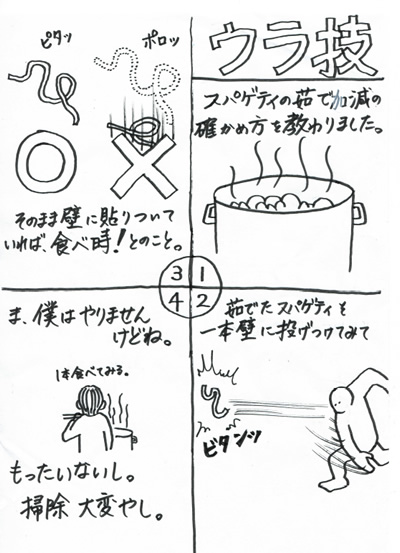 ウラ技
スパゲティの茹で加減の
確かめ方を教わりました。
1
茹でたスパゲティを
一本壁に投げつけてみて
ビタンッ
2
ピタッ
ポロッ
そのまま壁に貼りついて
いれば、食べ時！とのこと。
3
4
ま、僕はやりません
けどね。
1本食べてみる。
もったいないし。
掃除大変やし。